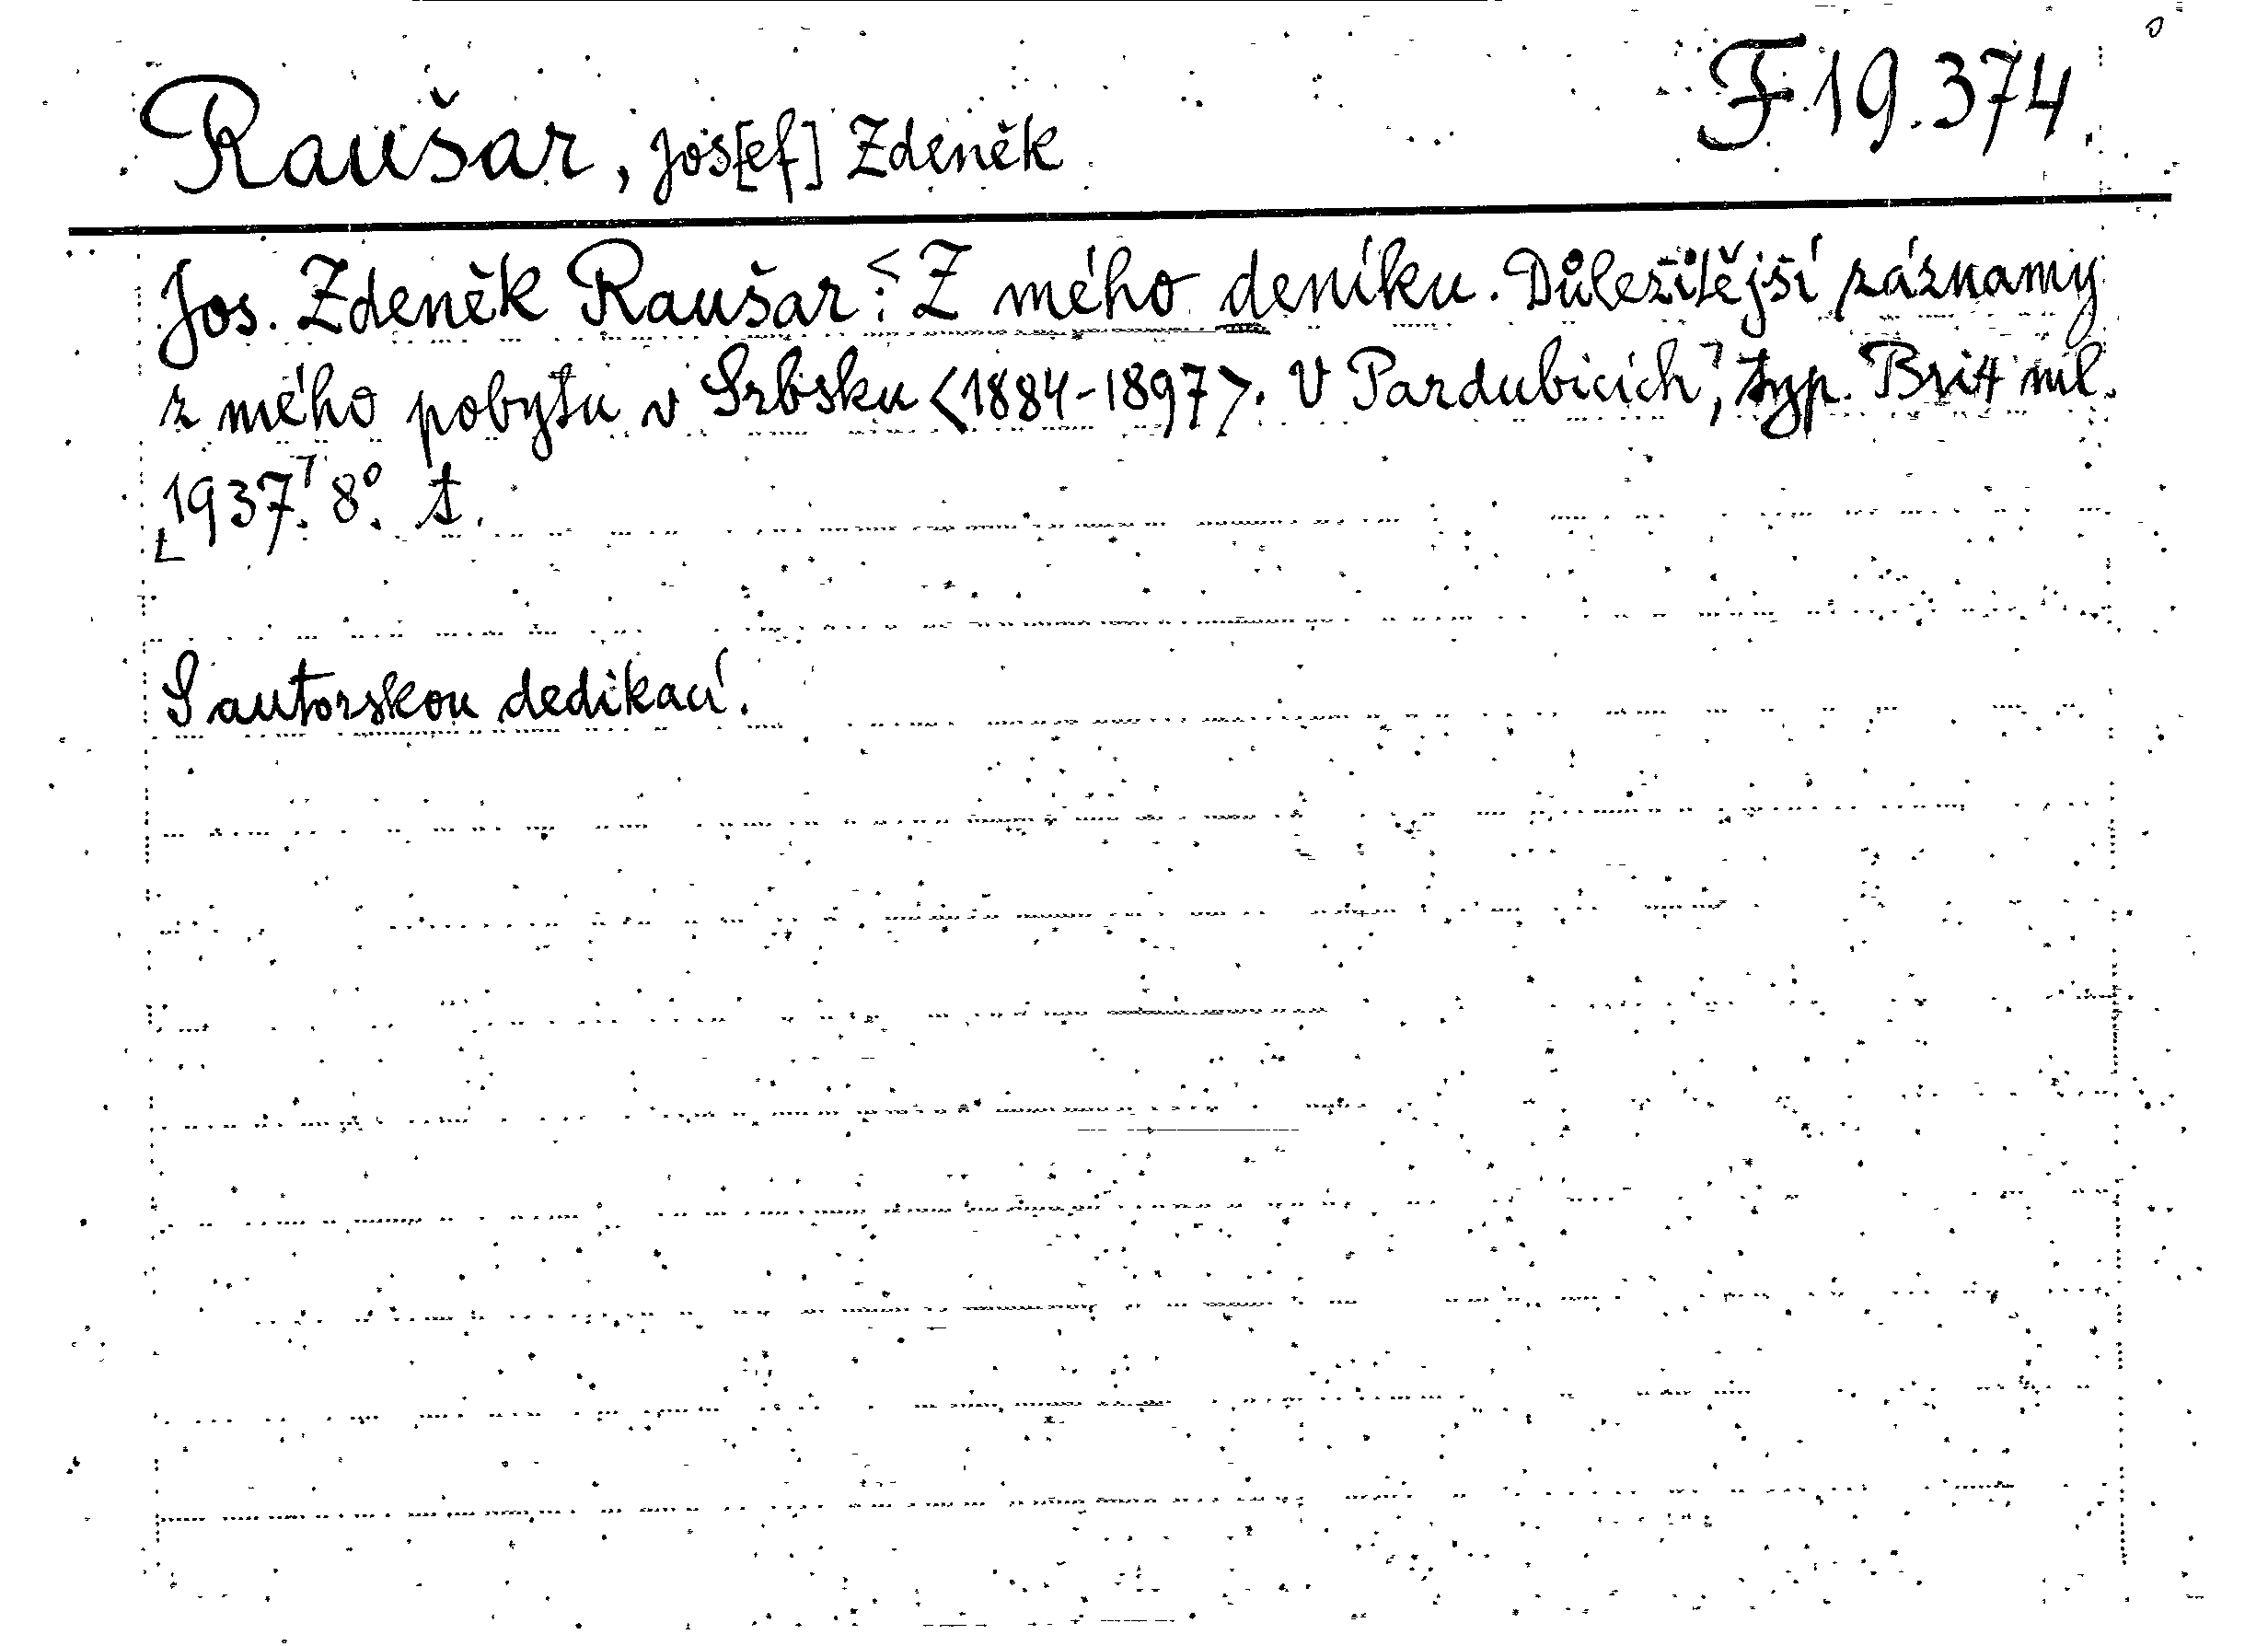 Raušar, Jos[ef] Zdeněk F 19.374
Jos. Zdeněk Raušar: Z mého deníku. Důležitější záznamy
z mého pobytu v Srbsku <1884-1897>. V Pardubicích, typ. Brit ml.
1937. 8°. t.
S autorskou dedikací.